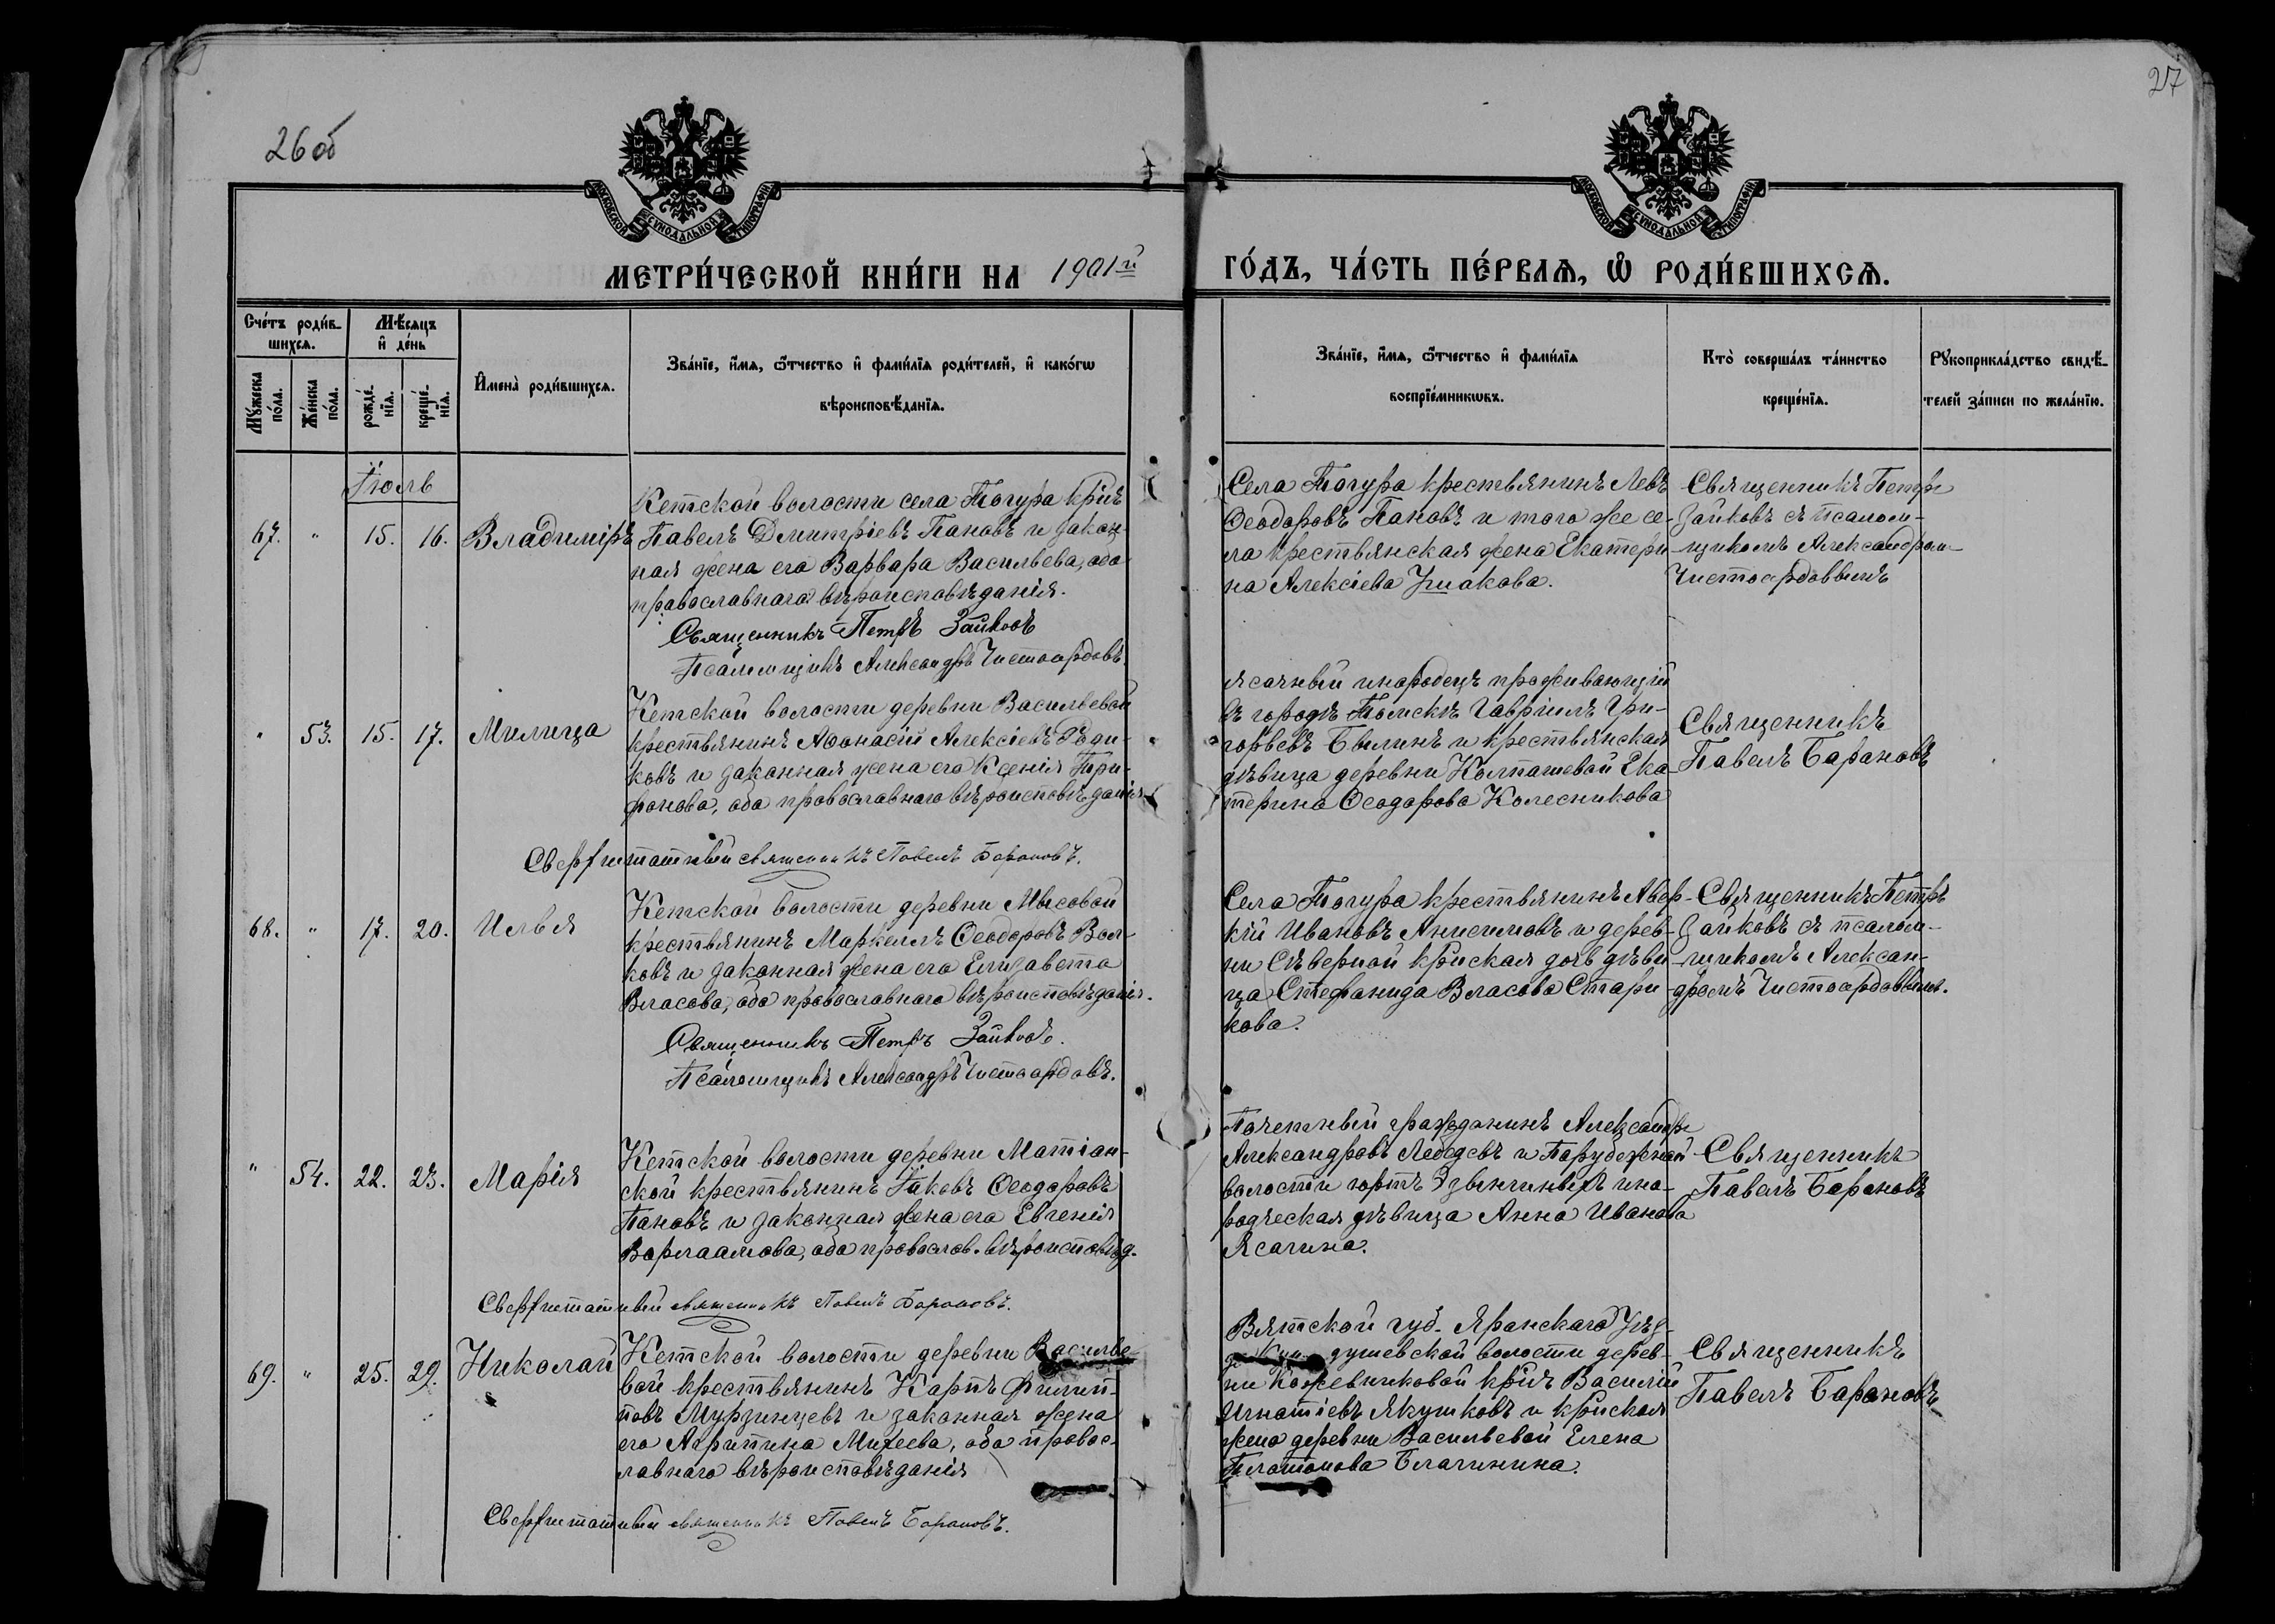 26 об
27
МОСКОВСКОЙ СѴНОДАЛЬНОЙ ТИПОГРАФІИ
МОСКОВСКОЙ СѴНОДАЛЬНОЙ ТИПОГРАФІИ
МЕТРИ́ЧЕСКОЙ КНИ́ГИ НА 1901й ГО́ДЪ, ЧА́СТЬ ПЕ́РВАѦ, Ѡ҆ РОДИ́ВШИХСѦ.
Сче́тъ роди́в-
шихсѧ.
Мꙋ́жеска по́ла.
Же́нска по́ла.
Мѣ́сѧцъ
и҆ де́нь
рожде́-
нїѧ.
креще́-
нїѧ.
И҆мена̀ роди́вшихсѧ.
Зва́нїе, и҆́мѧ, ѻ҆́тчество и҆ фами́лїѧ роди́телей, и҆ како́гѡ
вѣроисповѣ́данїѧ.
Зва́нїе, и҆́мѧ, ѻ҆́тчество и҆ фами́лїѧ
воспрїе́мникѡвъ.
Кто̀ соверша́лъ та́инство
креще́нїѧ.
Рꙋкоприкла́дство свидѣ́-
телей за́писи по жела́нїю.
Іюль
67. " 15. 16. Владиміръ
Кетской волости села Тогура кр̄нъ
Павелъ Димитріевъ Пановъ и закон-
ная жена его Варвара Васильева, оба
православнаго вѣроисповѣданія.
Священникъ Петръ Зайковъ
Псаломщикъ Александръ Чистосердовъ.
Села Тогура крестьянинъ Левъ
Ѳеодоровъ Пановъ и того же се-
ла крестьянская жена Екатери-
на Алексіева Ушакова.
Священникъ Петръ
Зайковъ съ псалом-
щикомъ Александром
Чистосердовымъ
" 53. 15. 17. Милица
Кетской волости деревни Васильевой
крестьянинъ Аѳанасій Алексіевъ Роди-
ковъ и законная жена его Ксенія Три-
фонова, оба православнаго вѣроисповѣданія
Сверхштатный священникъ Павелъ Барановъ.
Ясачный инородецъ проживающій
въ городѣ Томскѣ Гавріилъ Гри-
горьевъ Былинъ и крестьянская
дѣвица деревни Колпашевой Ека-
терина Ѳеодорова Колесникова
Священникъ
Павелъ Барановъ
68. " 17. 20. Илья
Кетской волости деревни Мысовой
крестьянинъ Маркеллъ Ѳеодоровъ Вол-
ковъ и законная жена его Елизавета
Власова, оба православнаго вѣроисповѣданія.
Священникъ Петръ Зайковъ.
Псаломщикъ Александръ Чистосердовъ.
Села Тогура крестьянинъ Авер-
кій Ивановъ Анисимовъ и дерев-
ни Сѣверной кр̄нская дочь дѣви-
ца Стефанида Власова Стари-
кова.
Священникъ Петръ
Зайковъ съ псалом-
щикомъ Алексан-
дромъ Чистосердовымъ.
" 54. 22. 23. Марія
Кетской волости деревни Матіан-
ской крестьянинъ Іаковъ Ѳеодоровъ
Пановъ и законная жена его Евгенія
Варлаамова, оба православ. вѣроисповѣд.
Сверхштатный священникъ Павелъ Барановъ.
Почетный гражданинъ Александръ
Александровъ Лебедевъ и Парубежной
волости юртъ ино-
родческая дѣвица Анна Иванова
Ясачина.
Священникъ
Павелъ Барановъ
69. " 25. 29. Николай
Кетской волости деревни Василье-
вой крестьянинъ Карпъ Филип-
повъ Мурзинцевъ и законная жена
его Агрипина Михеева, оба правос-
лавнаго вѣроисповѣданія
Сверхштатный священникъ Павелъ Барановъ.
Вятской губ. Яранскаго Уѣз-
душевской волости дерев-
ни Кожевниковой кр̄нъ Василій
Игнатіевъ Якушковъ и кр̄нская
жена деревни Васильевой Елена
Платонова Благинина.
Священникъ
Павелъ Барановъ